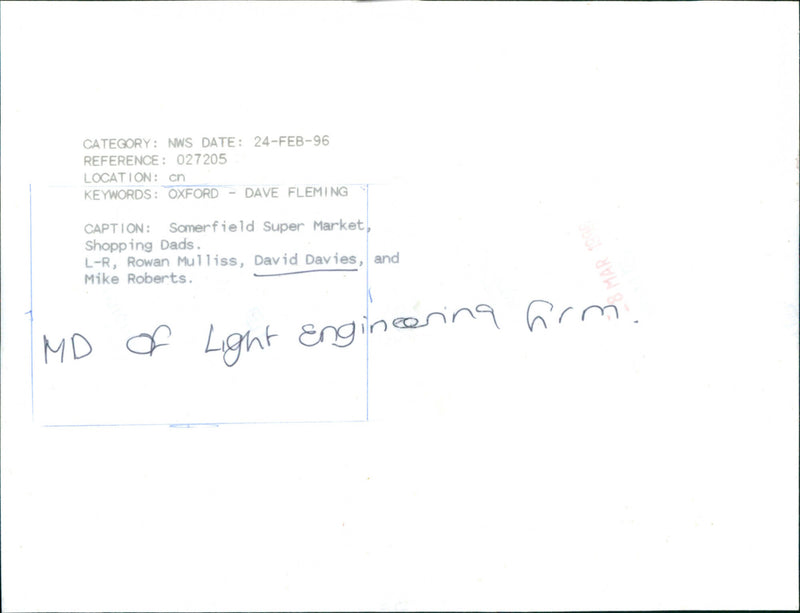 CATEGORY: NWS DATE: 24-FEB-96
REFERENCE: 027205
LOCATION: cn
KEYWORDS: OXFORD - DAVE FLEMING
CAPTION: Somerfield Super Market,
Shopping Dads.
L-R, Rowan Mulliss, David Davies, and
Mike Roberts.
MD OF Light Engineering firm.
-8 MAR 1996